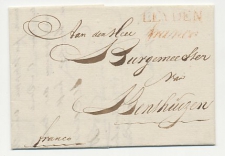 LEYDEN
Franco
Aan den Heer
Burgemeester
van
Benthuizen
franco